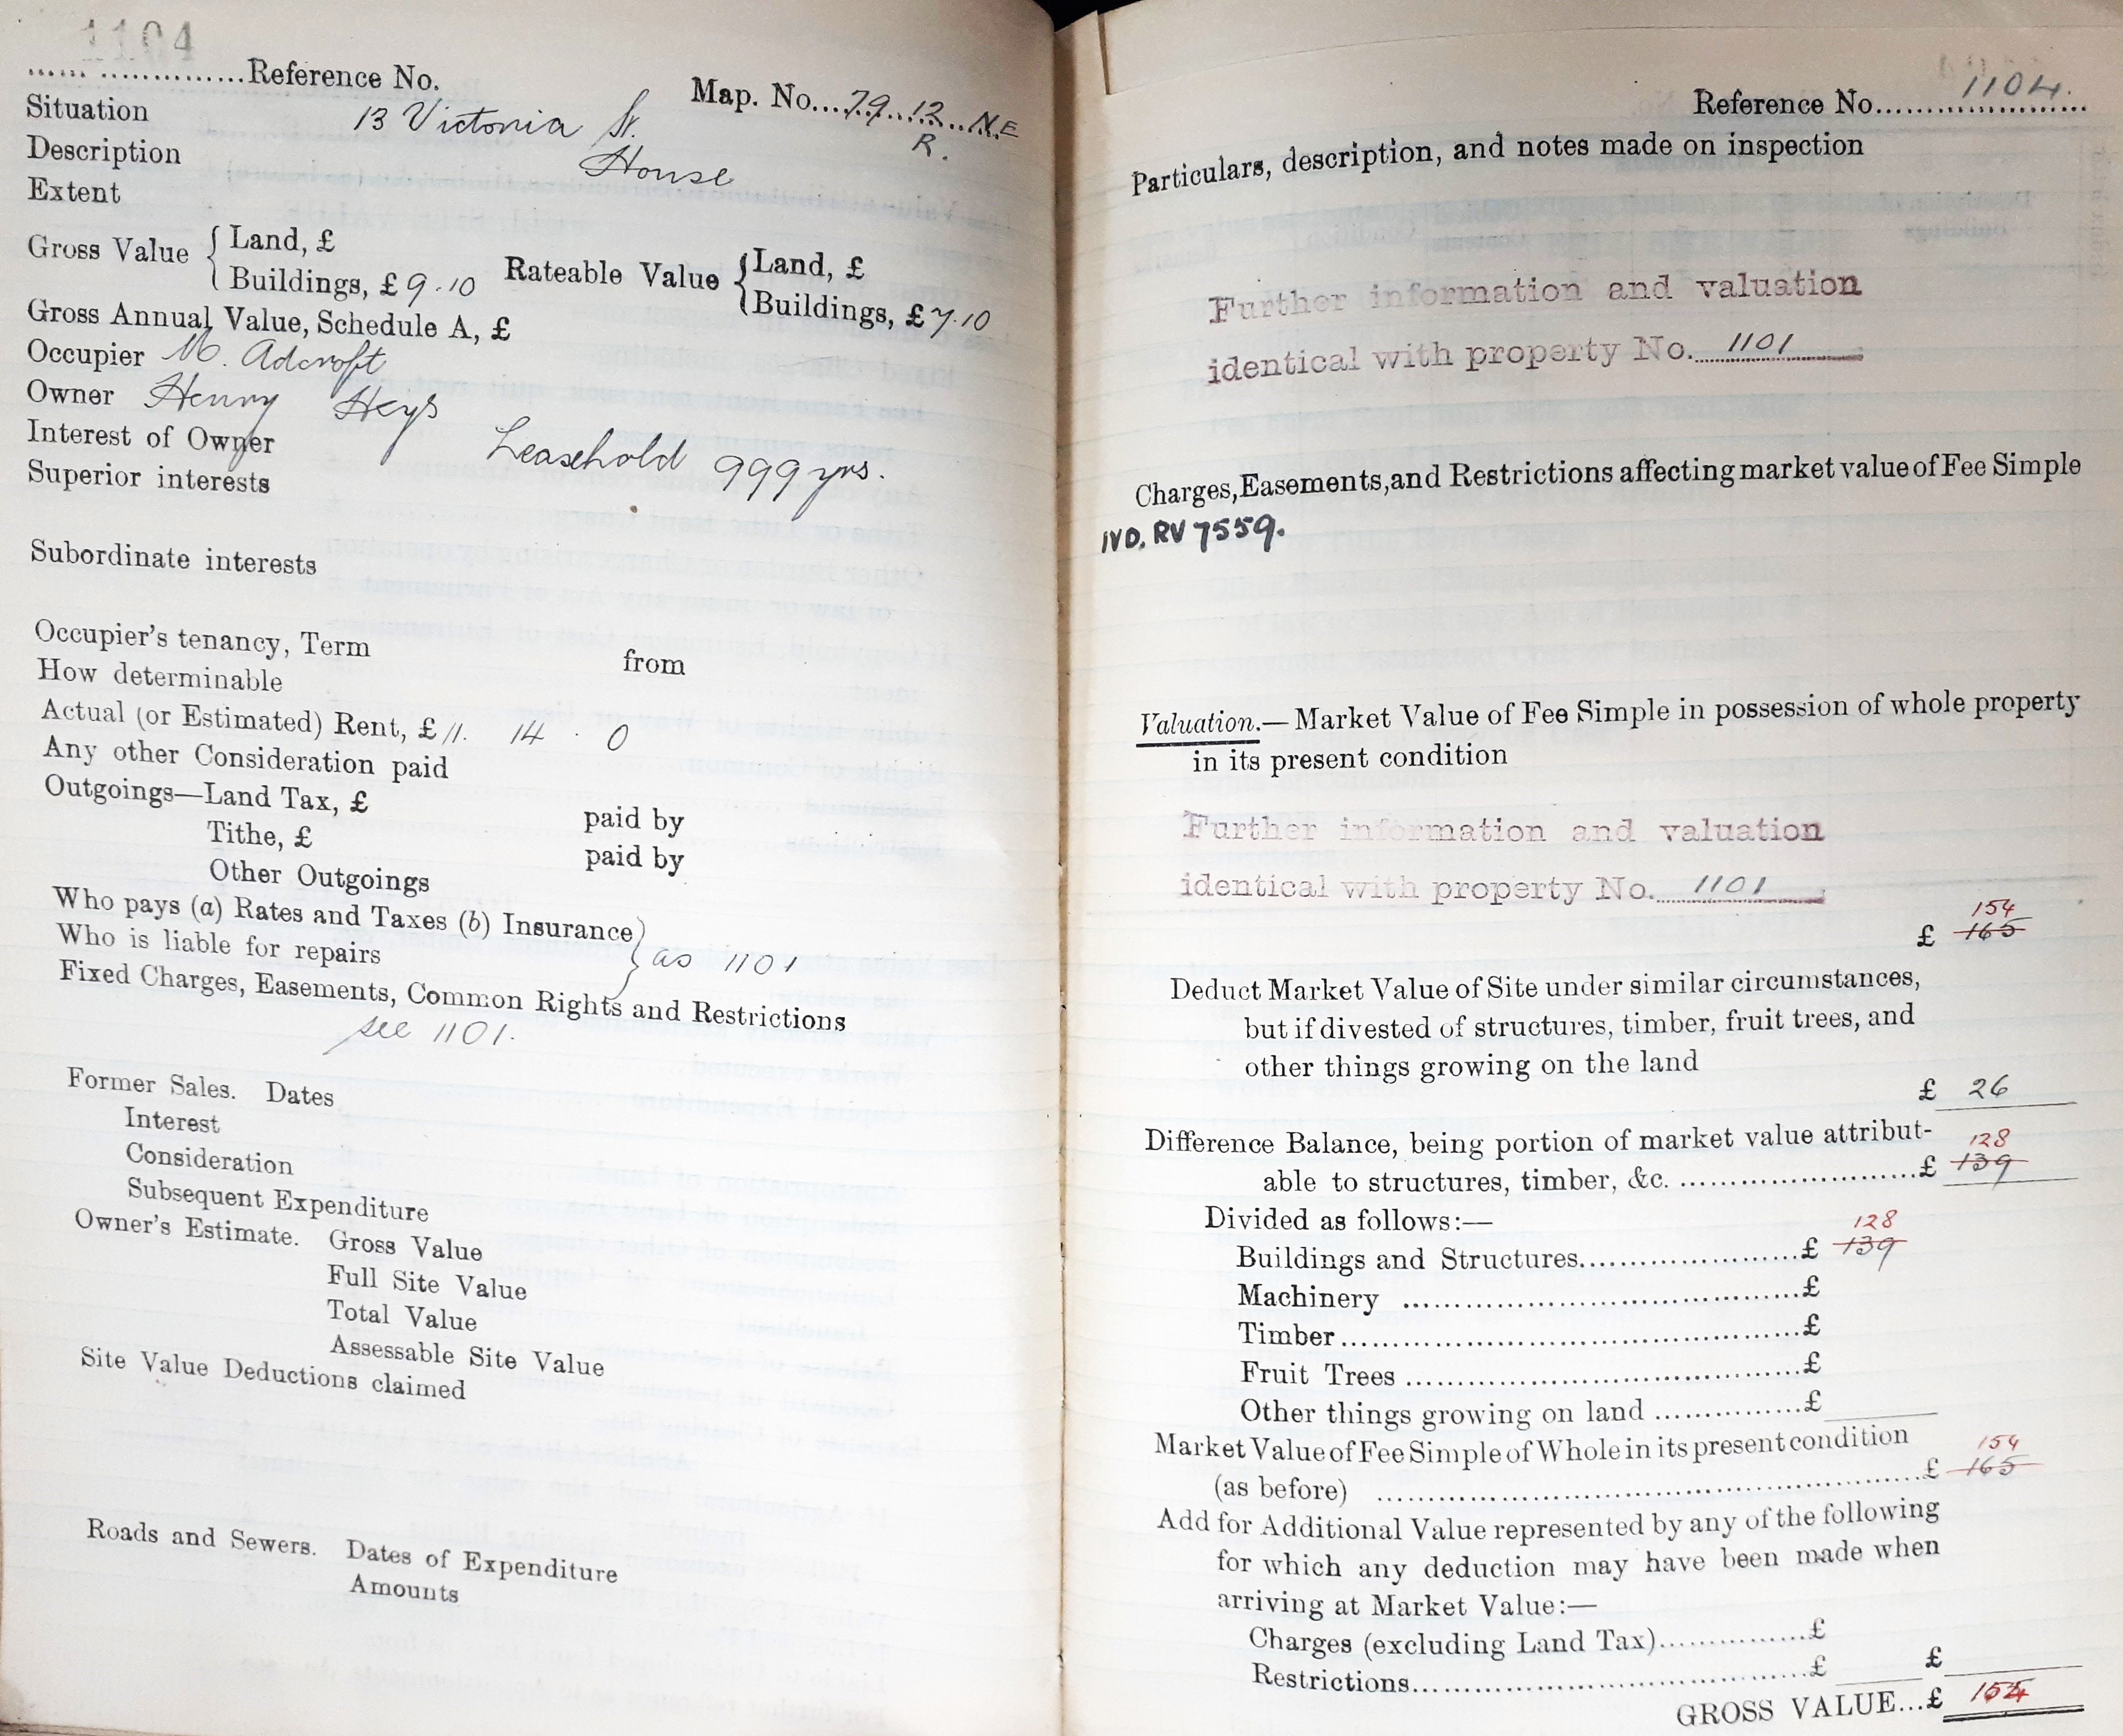 1104
...... ..............Reference No.
Map. No...79..12..N.E
R.
Situation 13 Victoria St.
Description House
Extent
Gross Value { Land, £
Buildings, £ 9.10
Rateable Value { Land, £
Buildings, £ 7.10
Gross Annual Value, Schedule A, £
Occupier M. Adcroft
Owner Henry Heys
Interest of Owner Leasehold 999 yrs.
Superior interests
Subordinate interests
Occupier's tenancy, Term from
How determinable
Actual (or Estimated) Rent, £ 11. 14 . 0
Any other Consideration paid
Outgoings—Land Tax, £ paid by
Tithe, £ paid by
Other Outgoings
Who pays (a) Rates and Taxes (b) Insurance }
Who is liable for repairs } as 1101
Fixed Charges, Easements, Common Rights and Restrictions
see 1101.
Former Sales. Dates
Interest
Consideration
Subsequent Expenditure
Owner's Estimate. Gross Value
Full Site Value
Total Value
Assessable Site Value
Site Value Deductions claimed
Roads and Sewers. Dates of Expenditure
Amounts
Reference No. 1104.
Particulars, description, and notes made on inspection
Further information and valuation
identical with property No. 1101
Charges, Easements, and Restrictions affecting market value of Fee Simple
IVD. RV 7559.
Valuation.—Market Value of Fee Simple in possession of whole property
in its present condition
Further information and valuation
identical with property No. 1101
154
£ 165
Deduct Market Value of Site under similar circumstances,
but if divested of structures, timber, fruit trees, and
other things growing on the land
£ 26
Difference Balance, being portion of market value attribut-
128
able to structures, timber, &c. ........................£ 139
Divided as follows:—
128
Buildings and Structures......................£ 139
Machinery ........................................£
Timber..............................................£
Fruit Trees .......................................£
Other things growing on land ...............£
Market Value of Fee Simple of Whole in its present condition
154
(as before) ........................................................£ 165
Add for Additional Value represented by any of the following
for which any deduction may have been made when
arriving at Market Value:—
Charges (excluding Land Tax)...............£
Restrictions..........................................£ £
GROSS VALUE...£ 154